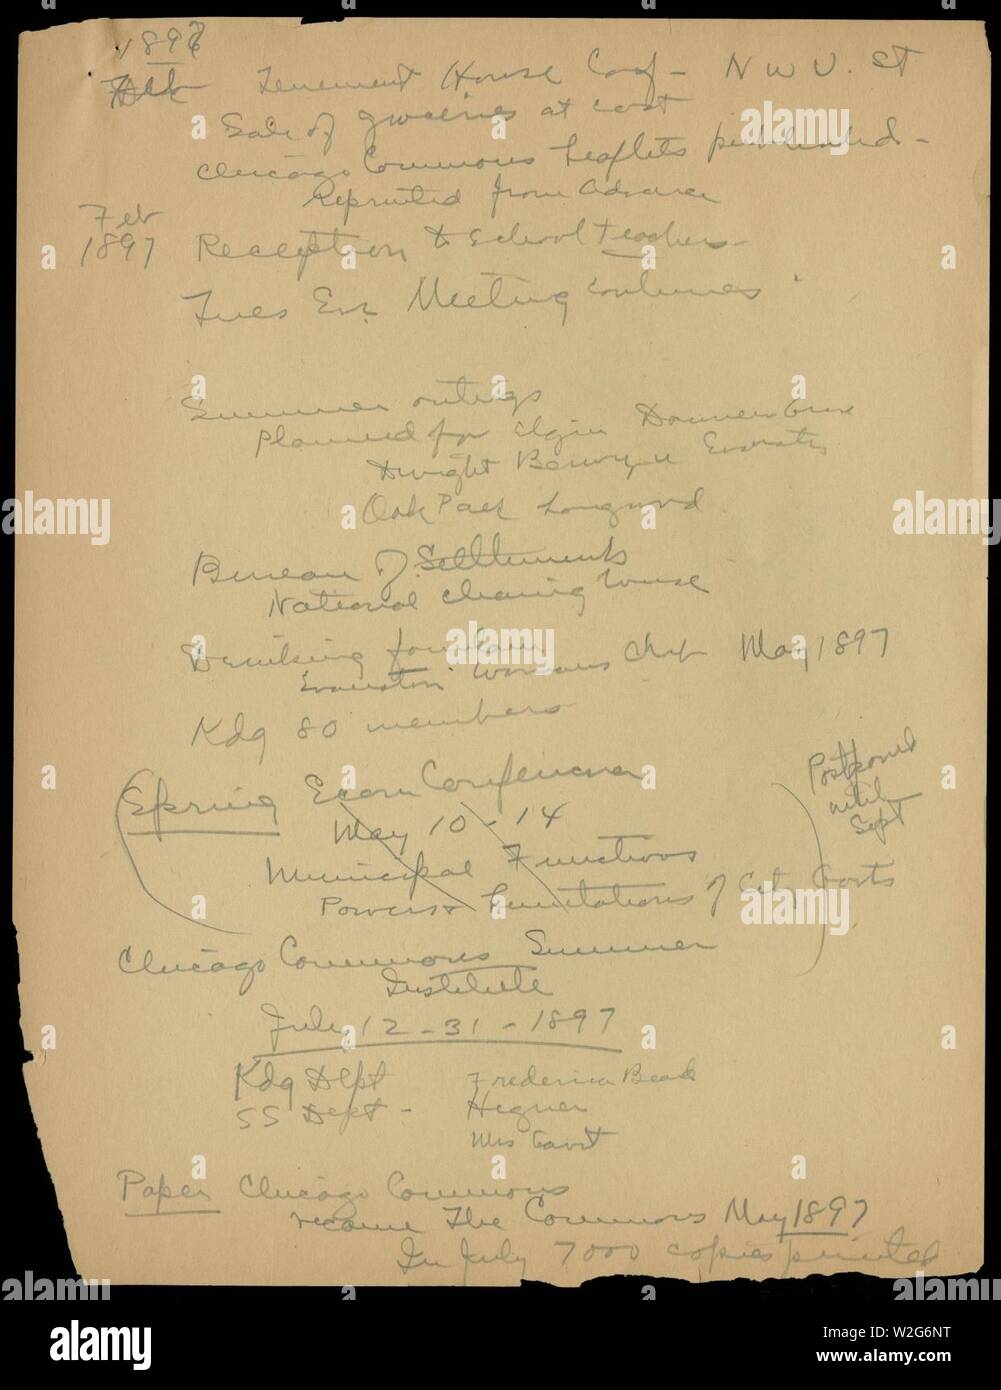 1897
Feb Tenement House Conf - N W U. St
Sale of groceries at cost
Chicago Commons Leaflets published -
Reprinted from Advance
Feb
1897 Reception to School teachers -
Tues Eve Meeting continues
Summer outings
Planned for Elgin Downers Grove
Dwight Berwyn Evanston
Oak Park Longwood
Bureau of Settlements
National Clearing house
Drinking fountain
Evanston Womans Club May 1897
Kdg 80 members
Spring Econ Conference
Postponed
until
Sept
May 10 - 14
Municipal Functions
Powers & Limitations of City Govts
Chicago Commons Summer
Institute
July 12 - 31 - 1897
Kdg Dept Frederica Beard
SS Dept - Hegner
Mrs Gavit
Paper Chicago Commons
became The Commons May 1897
In July 7000 copies printed
alamy
Image ID: W2G6NT
www.alamy.com